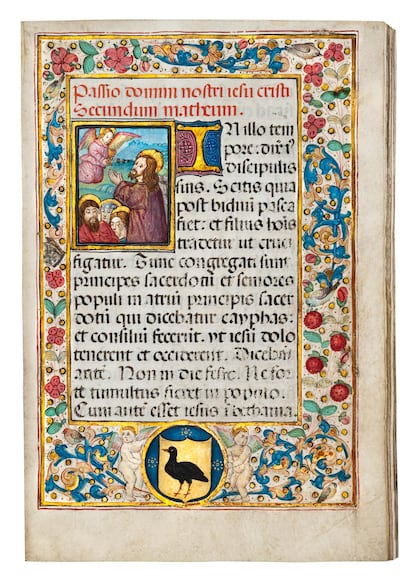 Passio domini nostri iesu cristi
Secundum matheum.
IN illo tem
pore: dix̄t
discipulis
suis. Scitis quia
post biduū pasca
fiet: et filius hoīs
tradetur ut cruci
figatur. Tunc congregati sunt
principes sacerdotū et seniores
populi in atriū principis sacer
dotū qui dicebatur cayphas:
et consiliū fecerūt. ut iesū dolo
tenerent et occiderent. Dicebāt
autē. Non in die festo. Ne for
te tumultus fieret in populo.
Cum autē esset iesus ī bethania